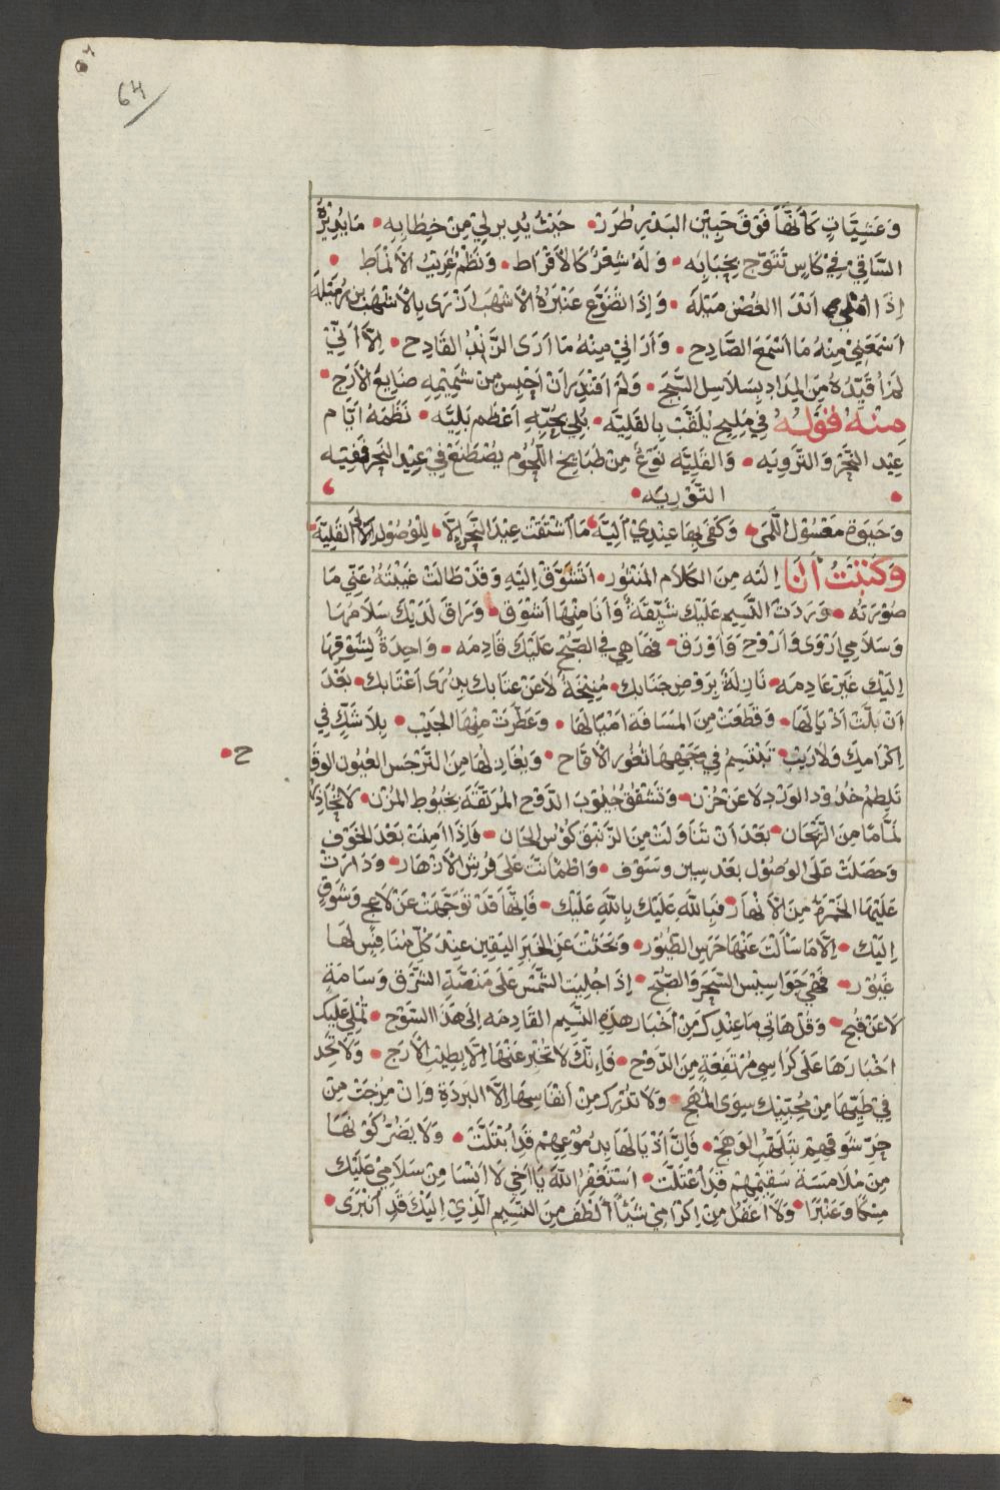 64
وَعَشِيَّاتٍ كَأَنَّهَا فَوْقَ جَبِيْنِ البَدْرِ طُرَرْ • حَيْثُ يُدِيرلِيْ مِنْ خِطَابِه • مَا يُدِيْرُهُ
السَّاقِيْ فِيْ كَاسٍ تَتَوّج بِحَبَابِه • وَلَهُ شِعْرٌ كَالأَقْرَاط • وَنَظْمٌ غَرِيْبُ الأَنْمَاط •
اِذَا انْدَا الغُصْن مَيّلَه • وَاِذَا تَضَوّع عَنْبَرُهُ الأَشْهَب اَزْرَى بِالأَشْهَب بن رُمَيْلَه
اَسْمَعَنِيْ مِنْهُ مَا اَسْمَعَ الصَّادِح • وَأَرَانِيْ مِنْهُ مَا اَرَى الزَّنْدُ القَادِح • اِلَّا اَنِّيْ
لَمْ اُقَيّدْهُ مِنَ المِدَادِ بِسَلَاسِل السَّبَجْ • وَلَمْ اَقْتَدِر اَنْ اَحْبِس مِنْ شَمِيْمِهِ ضَايِعَ الأَرَج •
مِنْهُ قَوْلُهُ فِيْ مَلِيْحٍ يُلَقّبُ بِالقَلِيَّه • بُلِي بِحُبِّهِ اَعْظَم بَلِيَّه • نَظَمَهُ اَيَّام
عِيْد النَّحْر وَالتَّرْوِيَه • وَالقَلِيَّه نَوْعٌ مِنْ طَبَايِخ اللُّحُوْم يُصْطَنَعْ فِيْ عِيْدِ النَّحْر فَفِيْه
• التَّوْرِيَه •
وَحَيوةِ مَعْسُوْل اللَّمَى • وَكَفَى بِهَا عِنْدِيْ اَلِيَّه مَا اَشْتَقْتُ عِيْدَ النَّحْرِ اِلَّا • لِلْوُصُوْلِ اِلَى القَلِيَّه
وَكَتَبْتُ اَنَا اِلَيْه مِنَ الكَلَام المَنْثُوْر • اَتَشَوَّقُ اِلَيْهِ وَقَدْ طَالَتْ غَيْبَتُهُ عَنِّي مَا
صُوْرَته • وَرَدَت النَّسِيم عَلَيْكَ شَيِّقَةً وَأَنَا مِنْهَا اَشْوَق • وَرَاقَ لَدَيْكَ سَلَامُهَا
وَسَلَامِي اَرْوَى وَاَرْوَح وَاَوْرَق • فَهَا هِي فِي الصُّبْحِ عَلَيْكَ قَادِمَه • وَاحِدَةٌ لِشَوْقِهَا
اِلَيْكَ غَيْرَ عَادِمَه • نَازِلَةً بِرَوْضِ جَنَابِك • مُنِيْخَةً لَاعَنْ عِتَابِك بِذُرَى اَعْتَابِك • بَعْدَ
اَنْ بَلَّتْ اَذْيَالَهَا • وَقَطَعَتْ مِنَ المَسَافَه اَمْيَالَهَا • وَعَطَّرَتْ مِنْهَا الجَيْب • بِلَا شَكٍّ فِيْ
اِكْرَامِكَ وَلَا رَيْب • تَبْتَسِمُ فِي ثُغُوْر الأَقَاح • وَيُغَازِلُهَا مِنَ النَّرْجَس العُيُون الوِقَا
ح •
تَلطِمُ خُدُوْد الوَرْد لَا عَنْ حُزْن • وَتَشْقُقُ جُيُوْب الدَّوْح المُرَتّقَة بِخُيُوط المُزْن •
لَمَّامًا مِنَ الرَّيْحَان • بَعْدَ اَنْ تَنَاوَلَتْ مِنَ الزَّنْبَقِ كُوُس الحَان • فَاِذَا اَمِنَتْ بَعْدَ الخَوْف
وَحَصَلَتْ عَلَى الوُصُوْل بَعْد سِين وَسَوْف • وَاطْمَانّتْ عَلَى فُرشِ الأَزْهَار • وَدَارَتْ
عَلَيْهَا الخَمْرَةُ مِنَ الأَنْهَار • فَبِاللّهِ عَلَيْكَ بِاللّهِ عَلَيْك • فَاِنَّهَا قَدْ تَوَجَّهَتْ عَنْ لَاعِجِ وَشَوْقٍ
اِلَيْك • اِلَّا مَا سَاَلْتَ عَنْهَا خُرسِ الطُّيُوْر • وَبَحَثْتَ عَنِ الخَبَرِ اليَقِين عِنْدَ كُلّ مُنَافِسٍ لَهَا
غَيُوْر • فَهِيَ جَوَاسِيْس السَّحَر وَالصّبْح • اِذَا جُلِيَت الشَّمْسُ عَلَى مَنَصَّةِ الشَّرْقِ وَسَامَة
لَا عَنْ قُبْح • وَقُلْ هَاتِي مَا عِنْدِك مِنْ اَخْبَار هَذِهِ النَّسِيْم القَادِمَه اِلَى هَذَا السَّوْح • تُمْلِي عَلَيْك
اَخْبَارَهَا عَلَى كَرَاسِي مُرْتَفِعَةٍ مِنَ الدَّوْح • فَاِنَّكَ لَا تُخْبَرُ عَنْهَا اِلَّا بِطِيْبِ الأَرَج • وَلَا تَجِد
فِيْ طَيِّهَا مِنْ مُحِبّيْكَ سِوَى المُهَج • وَلَا تُدْرِك مِنْ اَنْفَاسِهَا اِلَّا البَرَدَةِ وَاِنْ مُزِجَتْ مِنْ
حَرِّ شَوْقِهِمْ بِتَلَهُّبِ الوَهَج • فَاِنَّ اَذْيَالَهَا بِدُمُوْعِهِمْ قَدِ اُبْتَلَّتْ • وَلَا يَضُرُّ كَوْنُهَا
مِنْ مُلَامَسَةِ سَقِيْمِهِمْ قَدِ اَعْتَلَّتْ • اَسْتَغْفِرُ اللّهَ يَا اَخِي لَا اَنْسَا مِنْ سَلَامِيْ عَلَيْك
مِسْكًا وَعَنْبَرًا • وَلَا اَغْفَل مِنْ اِكْرَامِيْ شَيْئًا اَلْطَف مِنَ النَّسِيْمِ الَّذِيْ اِلَيْكَ قَدِ اُنْبَرَى •